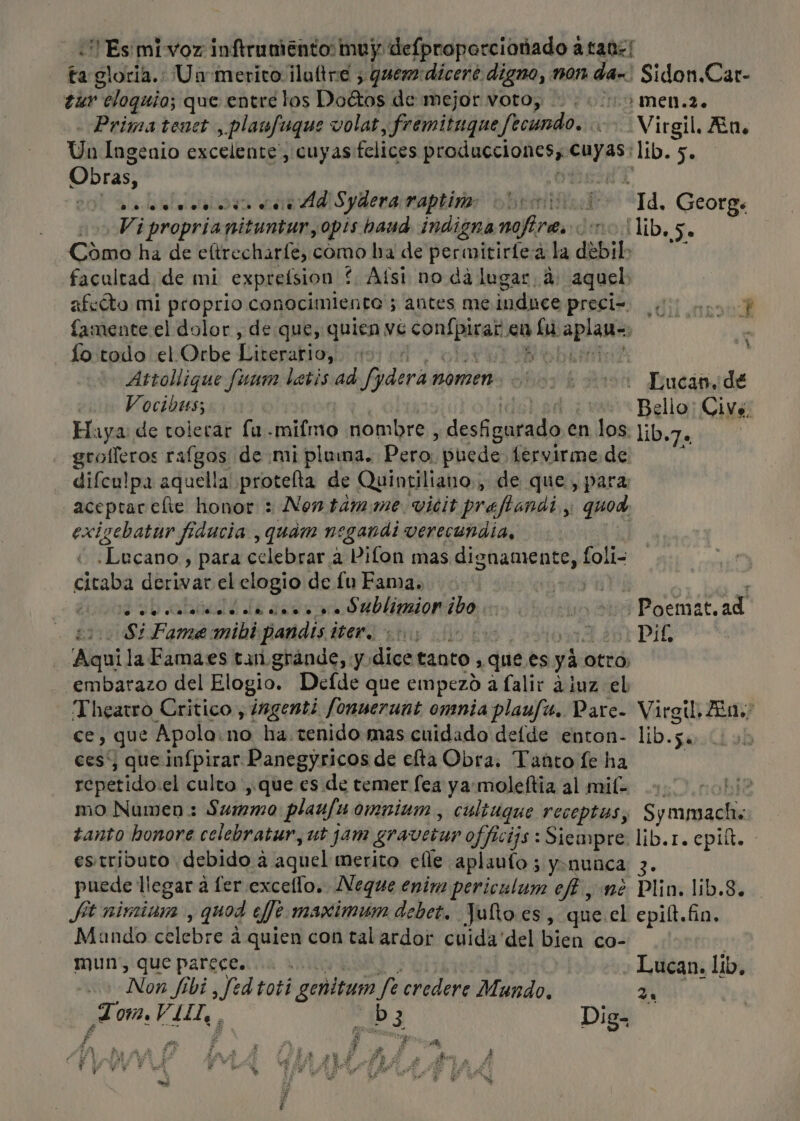 Es mi voz inſtrumento muy deſproporcionado à tan-
ta gloria. Un merito iluſtre, quem dicere digno, non da- Sidon. Car-
tur eloquio; que entre los Doctos de mejor voto, men.2.
Prima tenet, plauſuque volat, fremituque ſecundo. Virgil. Æn.
Un Ingenio excelente, cuyas felices producciones, cuyas lib. 5.
Obras,
Ad Sydera raptim Id. Georg.
Vi propria nituntur, opis haud indigna noſtræ. lib. 5.
Còmo ha de eſtrecharſe, como ha de permitirſe à la debil
facultad de mi expreſsion? Aſsi no dà lugar à aquel
afecto mi proprio conocimiento; antes me induce preci-
ſamente el dolor, de que, quien vè conſpirar en ſu aplau-
ſo todo el Orbe Literario,
Attollique ſuum lætis ad ſydera nomen Lucan. de
Vocibus; Bello Cive.
Haya de tolerar ſu miſmo nombre, desfigurado en los lib.7.
groſſeros raſgos de mi pluma. Pero puede ſervirme de
diſculpa aquella proteſta de Quintiliano, de que, para
aceptar eſte honor: Non tàm me vicit præſtandi, quod
exigebatur fiducia, quàm negandi verecundia.
Lucano, para celebrar à Piſon mas dignamente, ſoli-
citaba derivar el elogio de ſu Fama.
Sublimior ibo Poemat. ad
Si Famæ mihi pandis iter. Piſ.
Aqui la Fama es tan grande, y dice tanto, que es yà otro
embarazo del Elogio. Deſde que empezò à ſalir à luz el
Theatro Critico, ingenti ſonuerunt omnia plauſu. Pare- Virgil. Æn.
ce, que Apolo no ha tenido mas cuidado deſde enton- lib.5.
ces, que inſpirar Panegyricos de eſta Obra. Tanto ſe ha
repetido el culto, que es de temer ſea ya moleſtia al miſ-
mo Numen: Summo plauſu omnium, cultuque receptus, Symmach.
tanto honore celebratur, ut jam gravetur officijs: Siempre lib.1. epiſt.
es tributo debido à aquel merito eſſe aplauſo; y nunca 3.
puede llegar à ſer exceſſo. Neque enim periculum eſt, nè Plin. lib.8.
ſit nimium, quod eſſe maximum debet. Juſto es, que el epiſt.fin.
Mundo celebre à quien con tal ardor cuida del bien co-
mun, que parece. Lucan. lib.
Non ſibi, ſed toti genitum ſe credere Mundo. 2.
Tom. VIII. b 3 Dig-